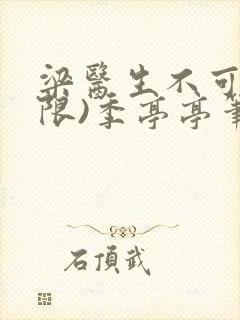 梁醫生不可
限)季亭亭筆
石頂武